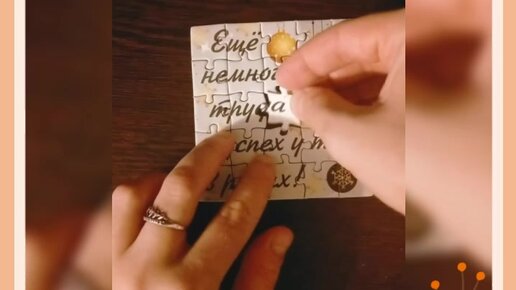 Ещё
немног
труда
спех у т
руках!